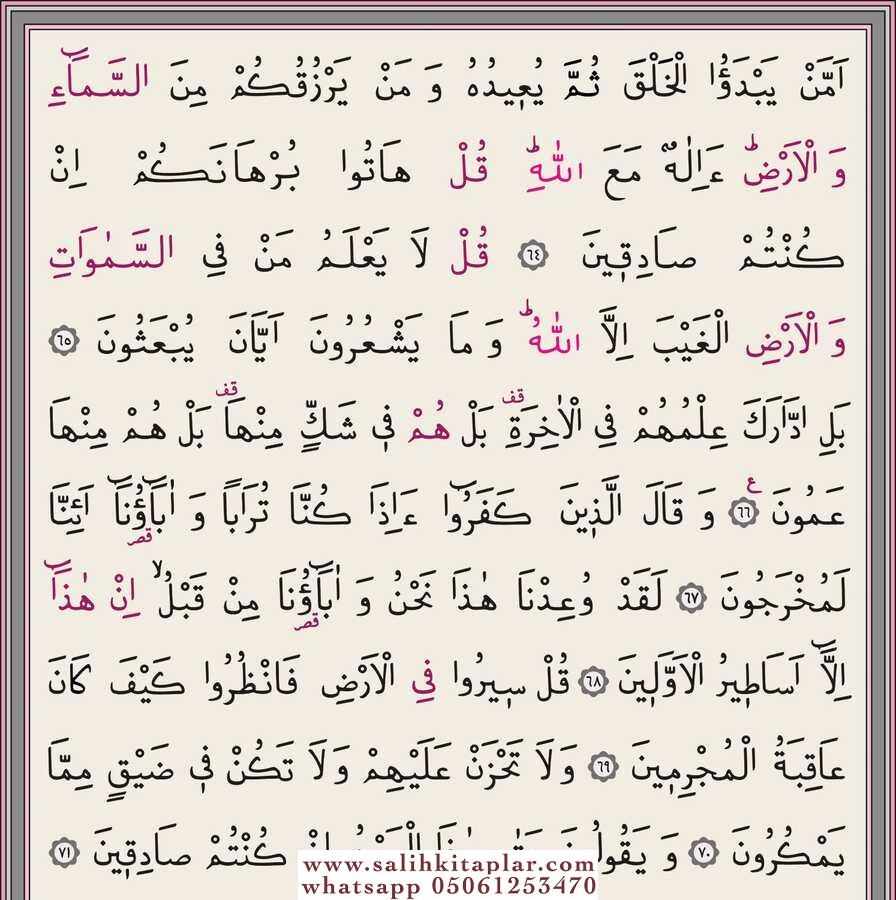 اَمَّنْ يَبْدَؤُا الْخَلْقَ ثُمَّ يُعٖيدُهُ وَ مَنْ يَرْزُقُكُمْ مِنَ السَّمَٓاءِ
وَ الْاَرْضِؕ ءَاِلٰهٌ مَعَ اللّٰهِؕ قُلْ هَاتُوا بُرْهَانَكُمْ اِنْ
كُنْتُمْ صَادِقٖينَ ﴿٦٤﴾ قُلْ لَا يَعْلَمُ مَنْ فِى السَّمٰوَاتِ
وَ الْاَرْضِ الْغَيْبَ اِلَّا اللّٰهُؕ وَ مَا يَشْعُرُونَ اَيَّانَ يُبْعَثُونَ ﴿٦٥﴾
بَلِ ادَّارَكَ عِلْمُهُمْ فِى الْاٰخِرَةِ قف بَلْ هُمْ فٖى شَكٍّ مِنْهَا قف بَلْ هُمْ مِنْهَا
عَمُونَ ﴿٦٦﴾ ع وَ قَالَ الَّذٖينَ كَفَرُٓوا ءَاِذَا كُنَّا تُرَاباً وَ اٰبَٓاؤُنَٓا قصر اَئِنَّا
لَمُخْرَجُونَ ﴿٦٧﴾ لَقَدْ وُعِدْنَا هٰذَا نَحْنُ وَ اٰبَٓاؤُنَا قصر مِنْ قَبْلُۙ اِنْ هٰذَٓا
اِلَّٓا اَسَاطٖيرُ الْاَوَّلٖينَ ﴿٦٨﴾ قُلْ سٖيرُوا فِى الْاَرْضِ فَانْظُرُوا كَيْفَ كَانَ
عَاقِبَةُ الْمُجْرِمٖينَ ﴿٦٩﴾ وَلَا تَحْزَنْ عَلَيْهِمْ وَلَا تَكُنْ فٖى ضَيْقٍ مِمَّا
يَمْكُرُونَ ﴿٧٠﴾ وَ كُنْتُمْ صَادِقٖينَ ﴿٧١﴾
www.salihkitaplar.com
whatsapp 05061253470